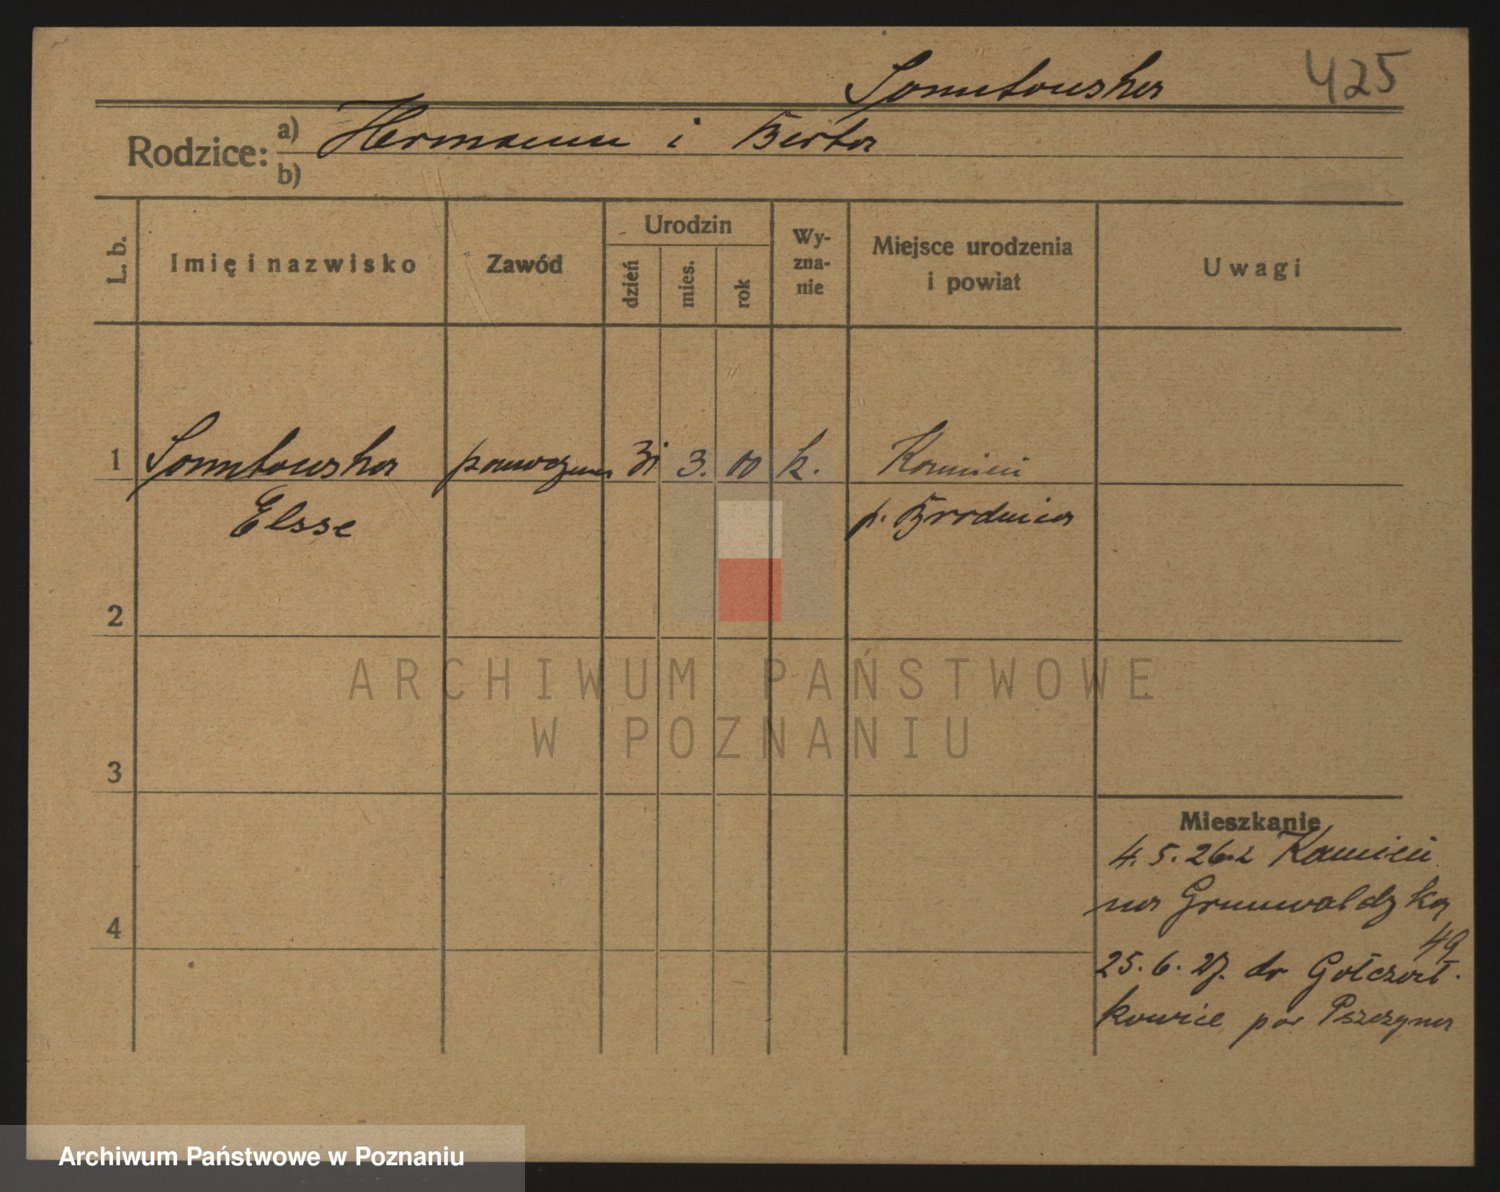 425
Rodzice: a) Hermann i Berta
b)
L. b.
Imię i nazwisko
Zawód
Urodzin
dzień
mies.
rok
Wy-
zna-
nie
Miejsce urodzenia
i powiat
Uwagi
1
31 3. 00 k. Kamień
Elsse p. Brodnica
2
ARCHIWUM PAŃSTWOWE
W POZNANIU
3
4
Mieszkanie
4. 5. 26 z Kamień
na Grunwaldzką
49
25. 6. 27. do Goczał-
kowice pow Pszczyna
Archiwum Państwowe w Poznaniu